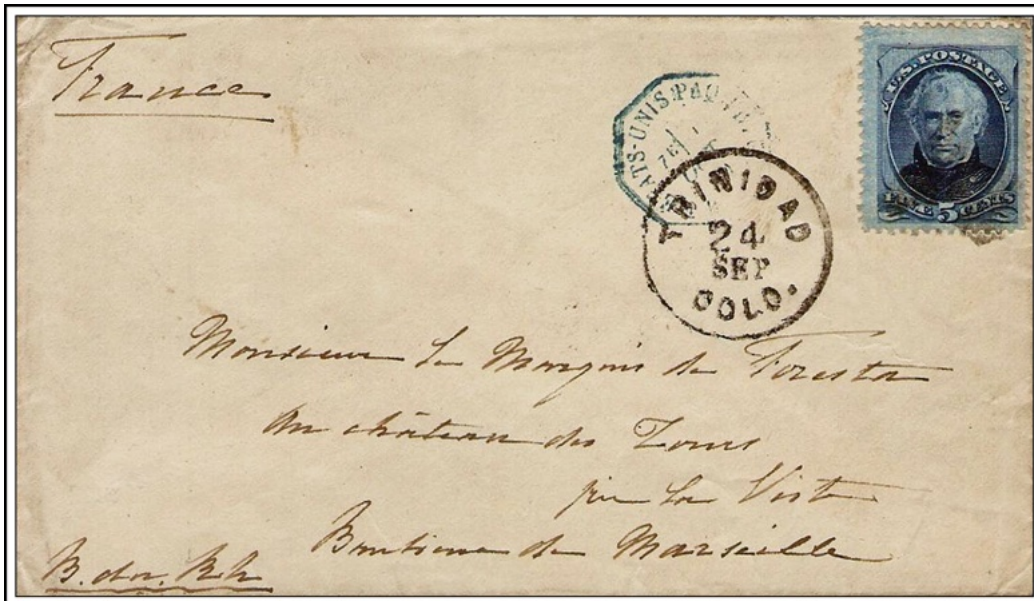 France
U.S. POSTAGE
FIVE 5 CENTS
TRINIDAD
24
SEP
COLO.
Monsieur le Marquis de Foresta
au château des Tours
par la Viste
Banlieue de Marseille
B. du Rh